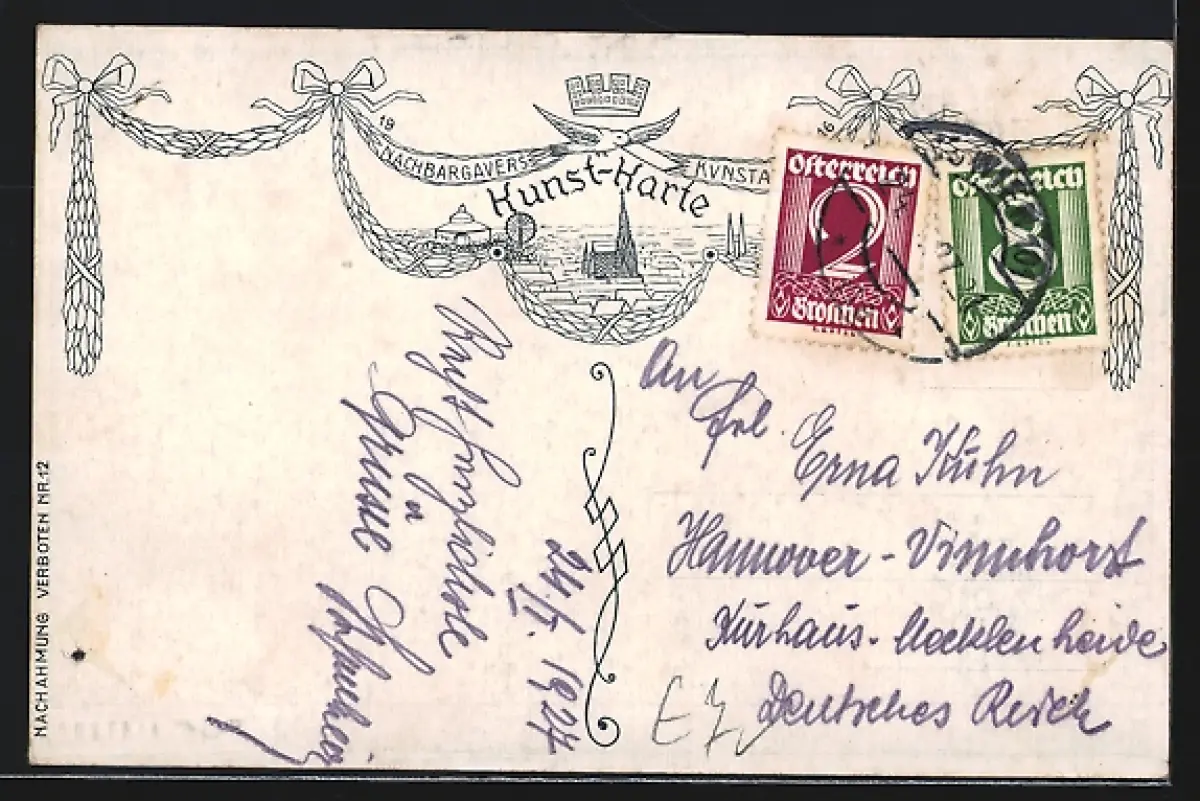 19
NACHBARGAVERS
KVNSTA
16
Kunst-Karte
Österreich
2
Groschen
Österreich
8
Groschen
WIEN
101
NACHAHMUNG VERBOTEN NR.12
24. 1927
Grüsse
An
Frl. Erna Kühn
Hannover-Vinnhorst
Kurhaus-Mecklenheide
Deutsches Reich